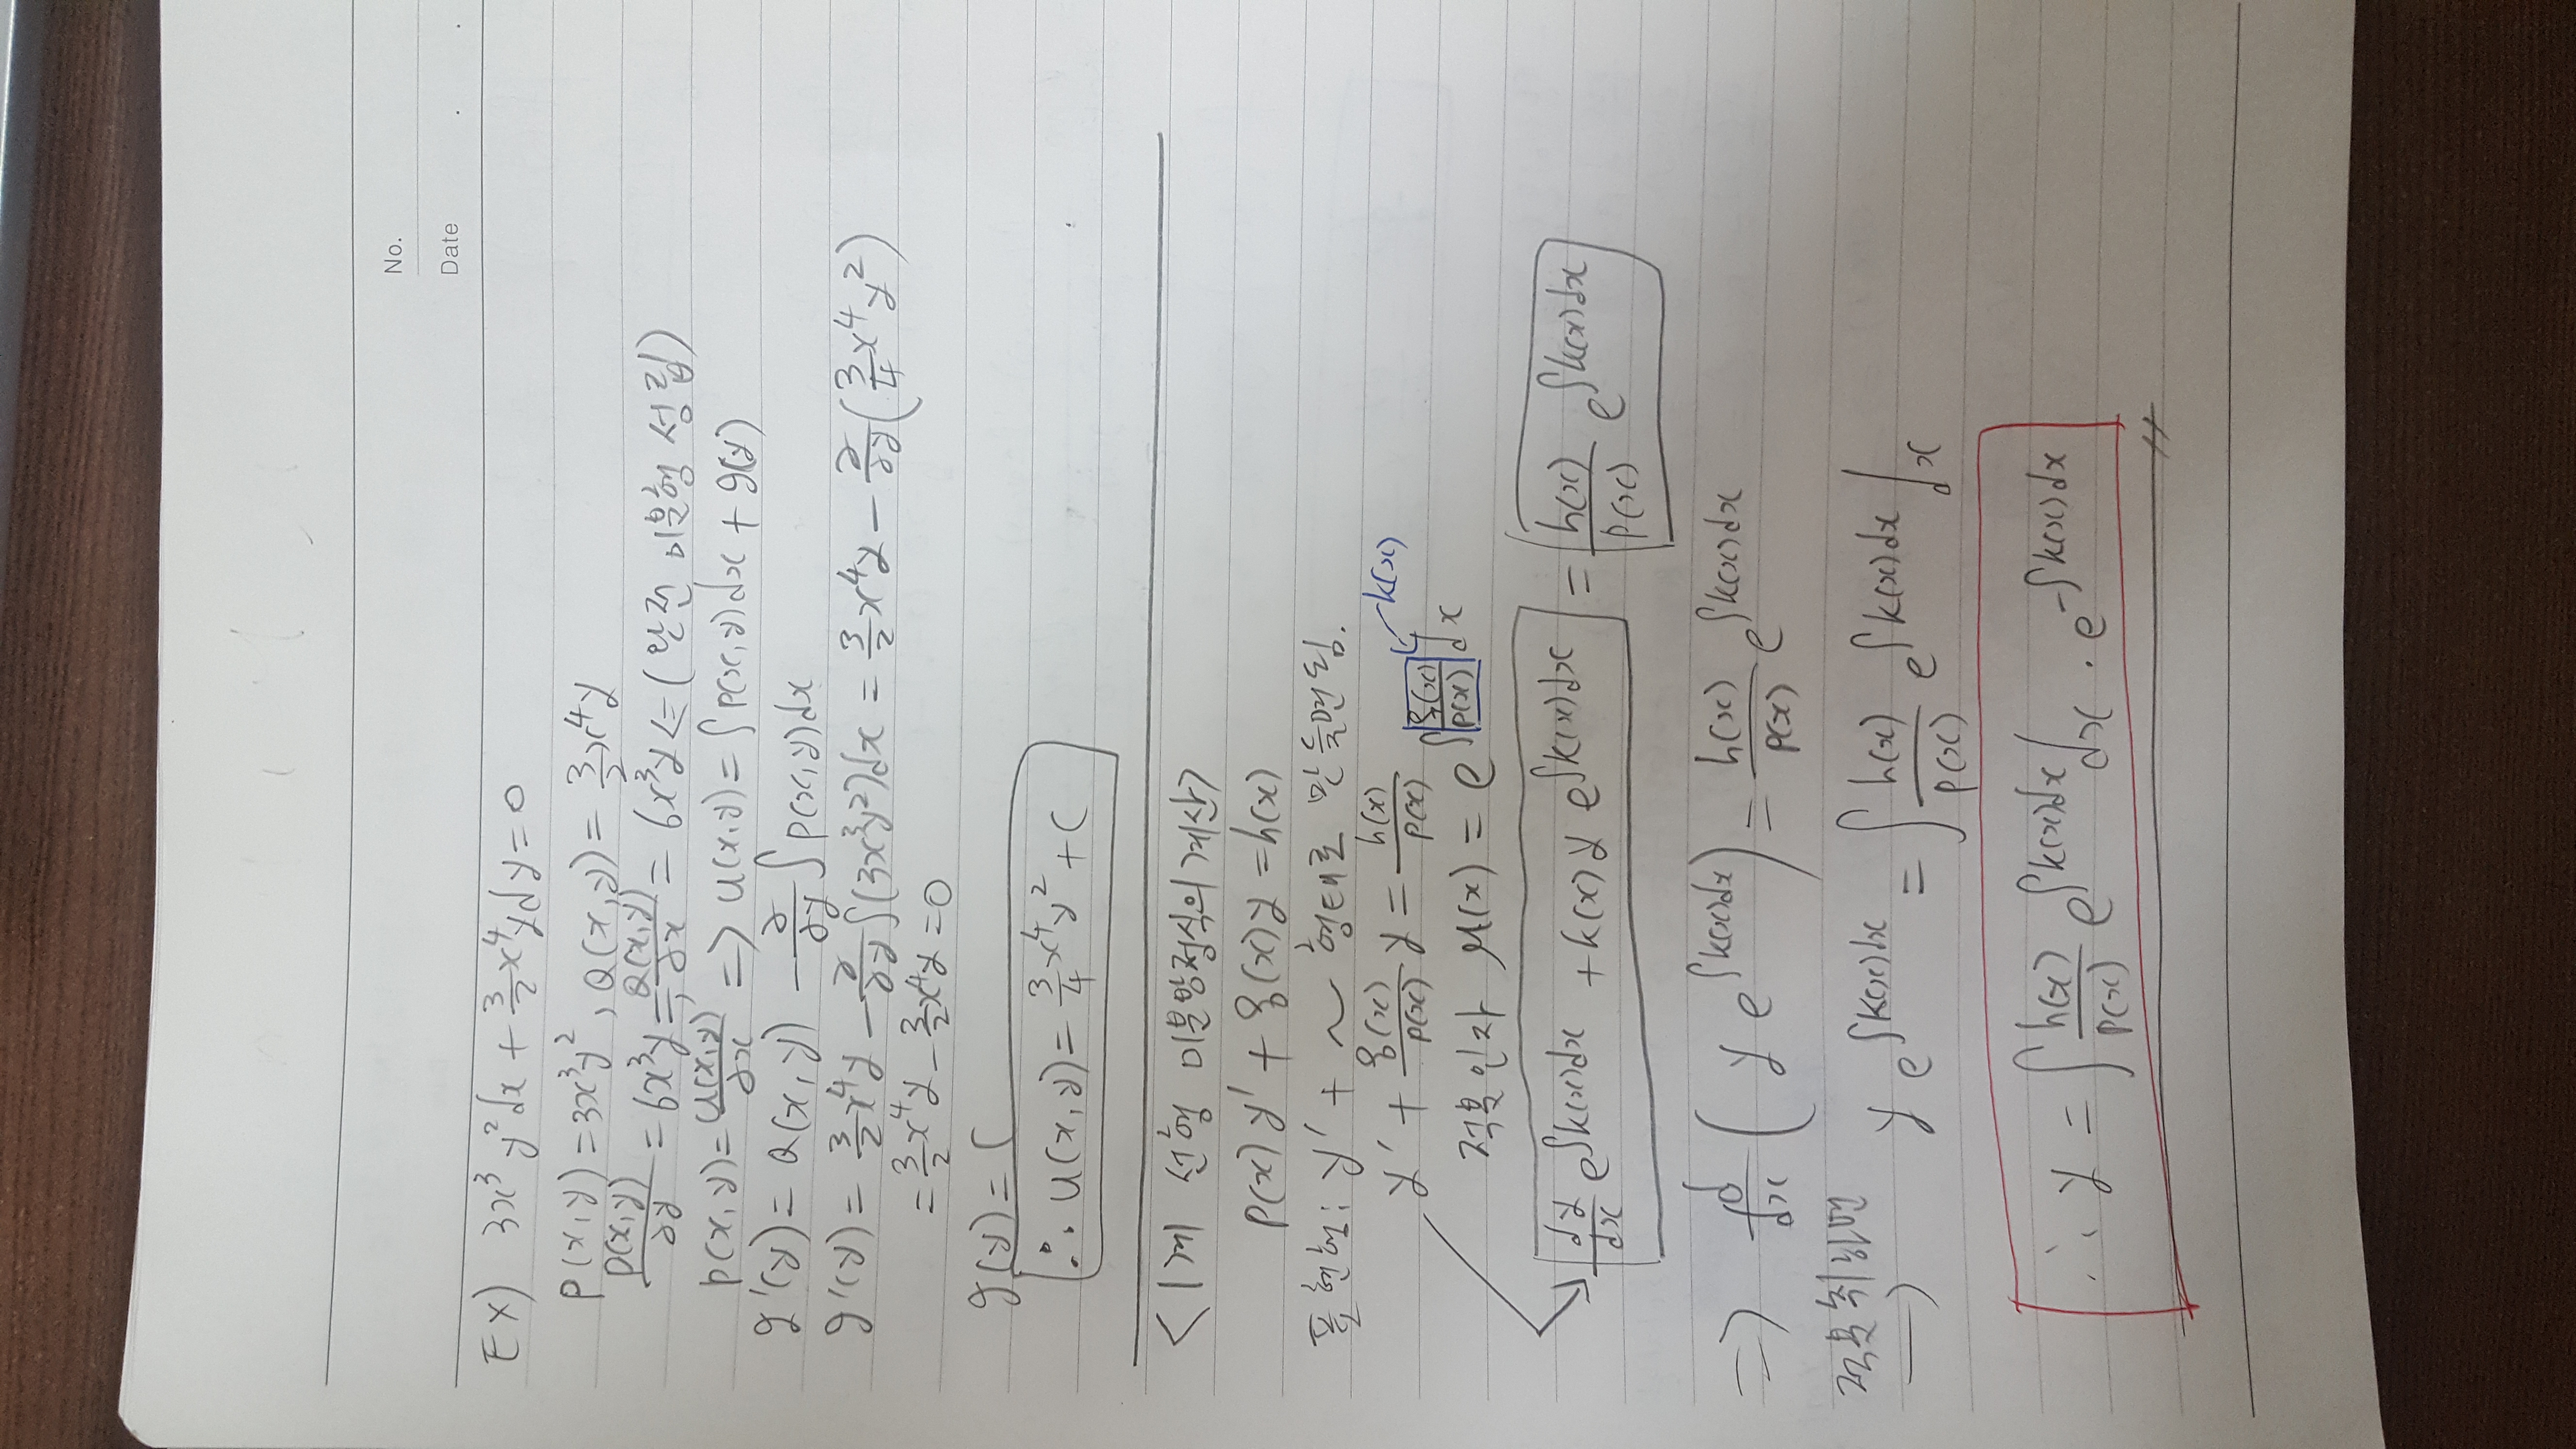 No.
Date . .
EX) 3x³y²dx + 3/2 x⁴ydy = 0
P(x,y) = 3x³y², Q(x,y) = 3/2 x⁴y
P(x,y)/∂y = 6x³y =, Q(x,y)/∂x = 6x³y <= (완전 미분형 성립)
P(x,y) = u(x,y)/∂x => u(x,y) = ∫P(x,y)dx + g(y)
g'(y) = Q(x,y) - ∂/∂y ∫P(x,y)dx
g'(y) = 3/2 x⁴y - ∂/∂y ∫(3x³y²)dx = 3/2 x⁴y - ∂/∂y (3/4 x⁴y²)
= 3/2 x⁴y - 3/2 x⁴y = 0
g(y) = C
∴ u(x,y) = 3/4 x⁴y² + C
<1계 선형 미분방정식의 계산>
P(x)y' + q(x)y = h(x)
표현형: y' + ~ 형태로 만들면됨.
y' + q(x)/P(x) y = h(x)/P(x)
k(x)
적분인자 μ(x) = e^∫q(x)/P(x) dx
dy/dx e^∫k(x)dx + k(x)y e^∫k(x)dx = h(x)/P(x) e^∫k(x)dx
=> d/dx (y e^∫k(x)dx) = h(x)/P(x) e^∫k(x)dx
적분취하면
=> y e^∫k(x)dx = ∫ h(x)/P(x) e^∫k(x)dx dx
∴ y = ∫ h(x)/P(x) e^∫k(x)dx dx · e^-∫k(x)dx